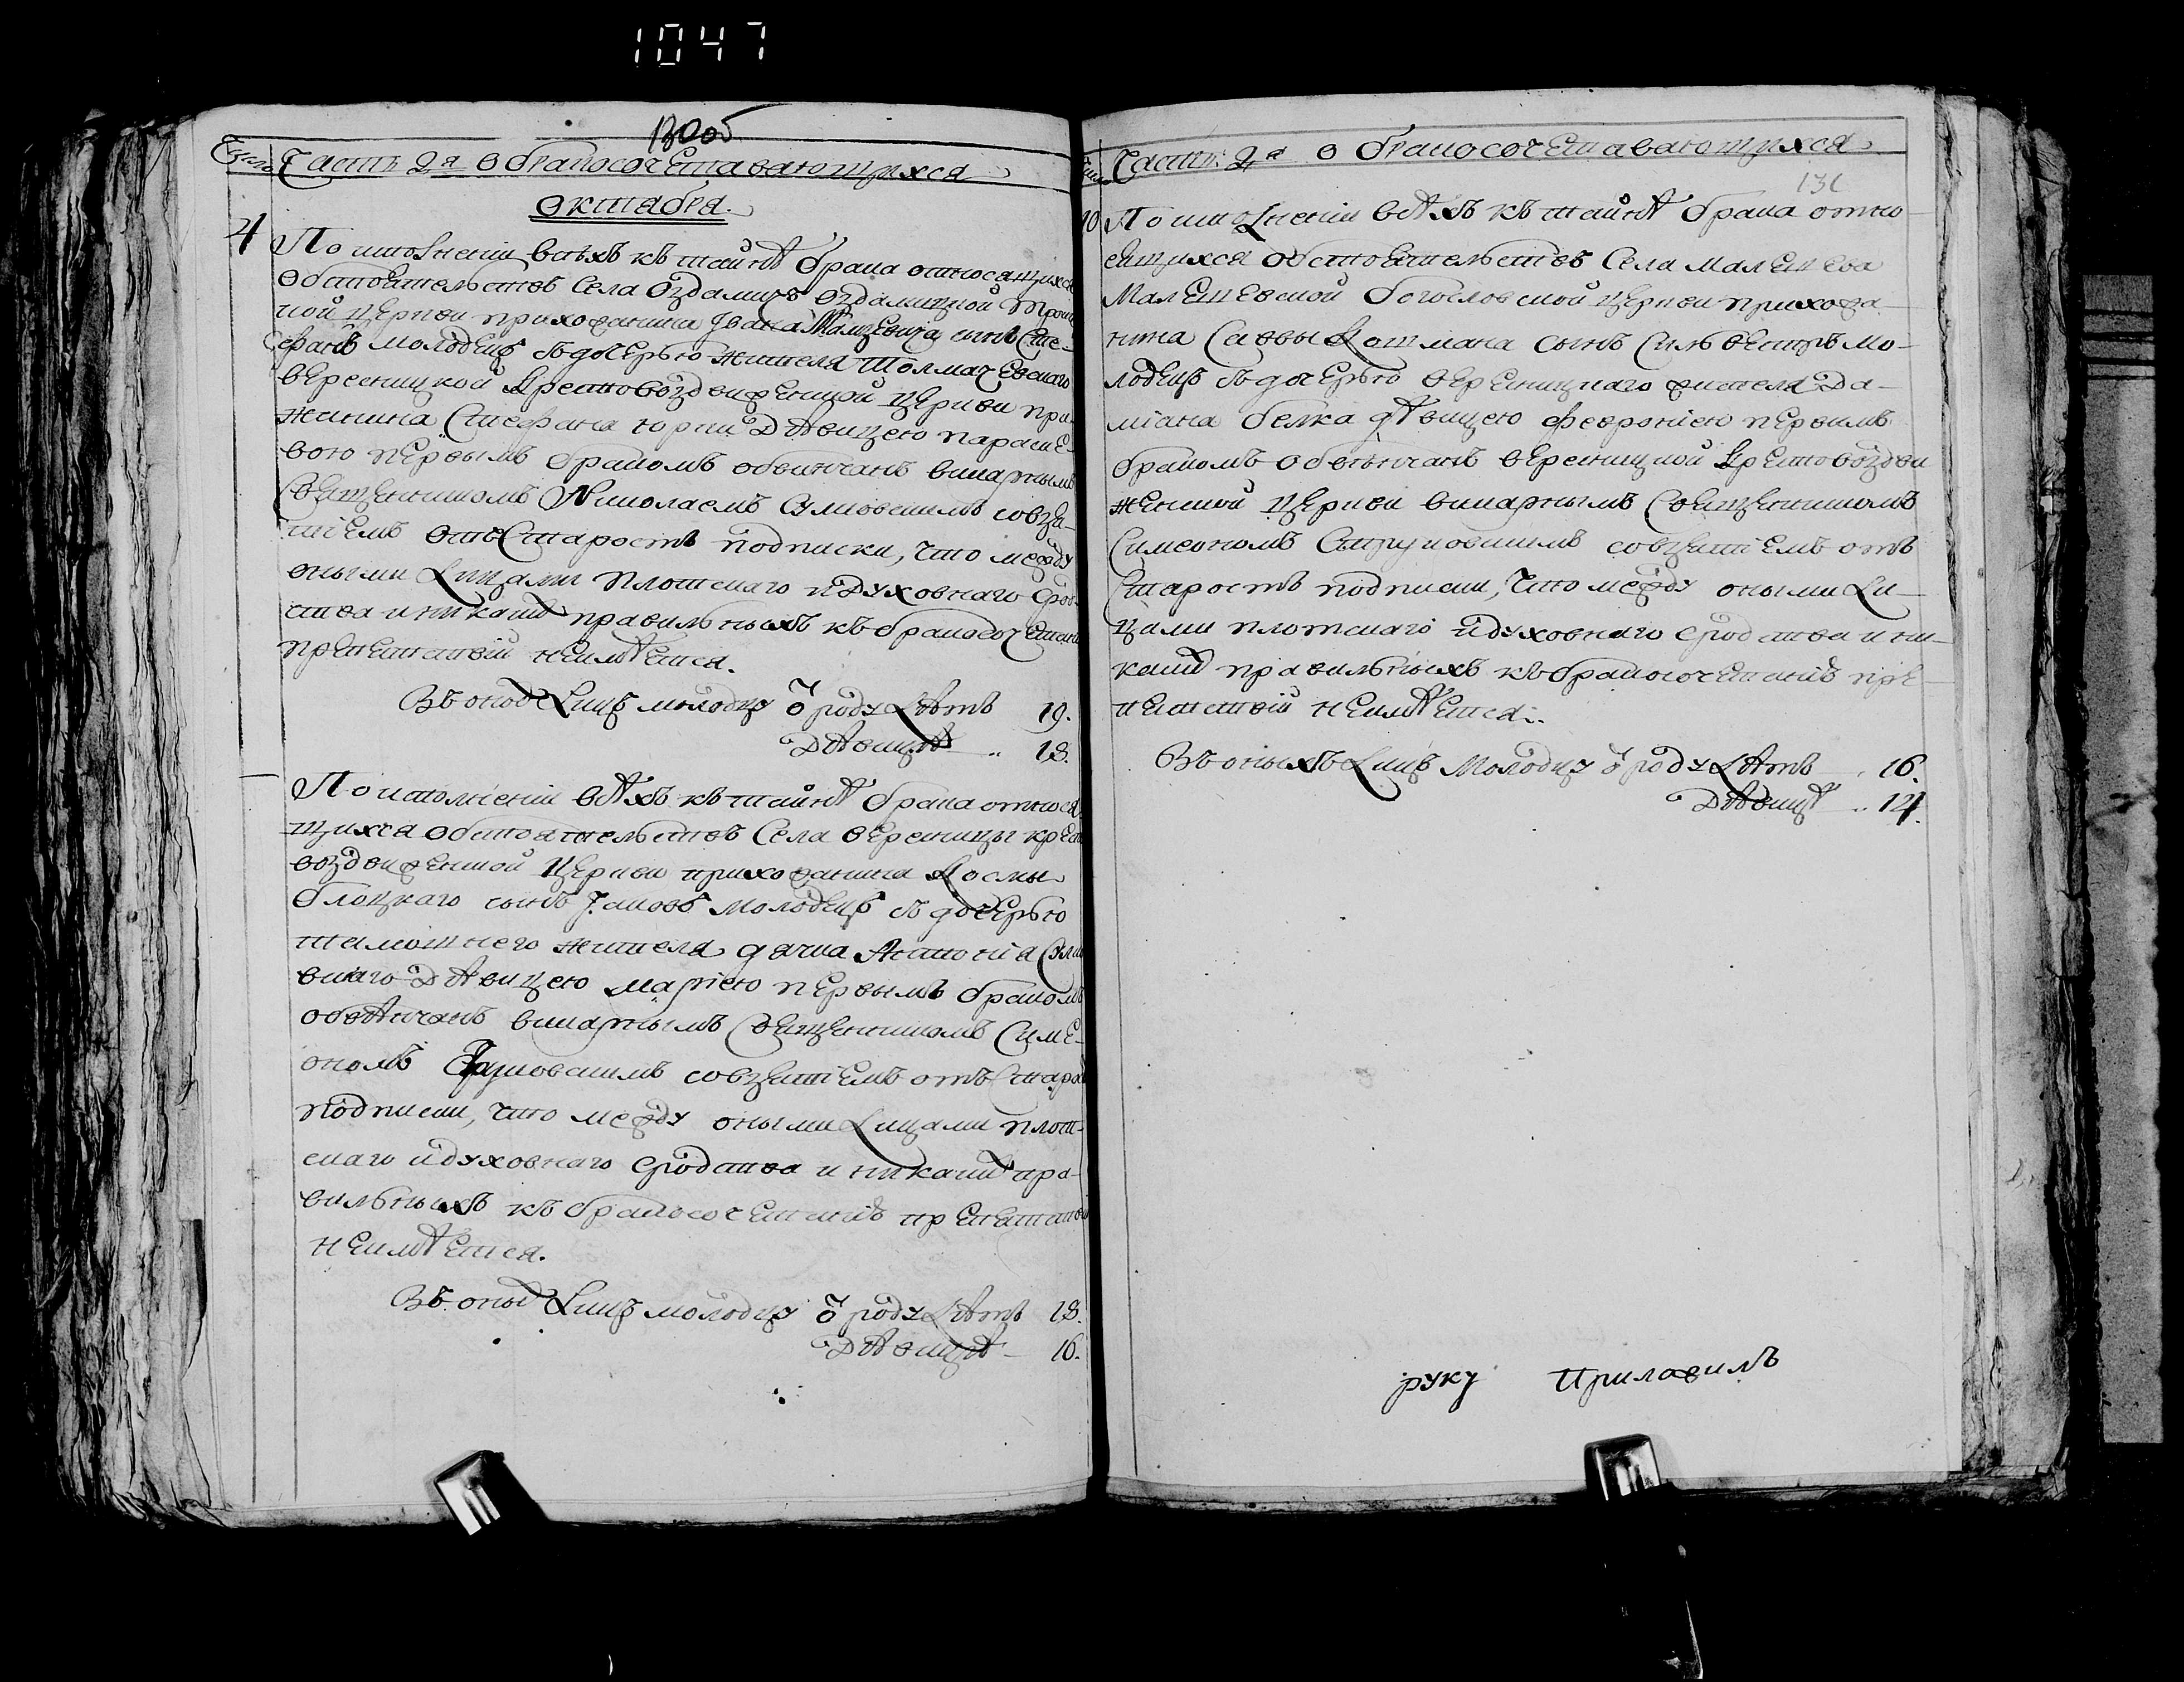 1047
130об
Число Часть 2я О бракосочетавающихся
Октября.
4 По исполненіи всѣхъ къ тайнѣ брака относящихся
обстоятельствъ Села Оздамичъ Оздамицкой Трои-
цкой церкви прихожанина Ивана сынъ Сте-
фанъ молодецъ съ дочерью жителя Толмачевскаго
вереницкой Крестовоздвиженской церкви при-
Стефана дѣвицею параске-
вою первымъ бракомъ обвѣнчанъ викарнымъ
Священникомъ Николаемъ совзя-
тіемъ отъ Старостъ подписки, что между
оными Лицами плотскаго и духовнаго срод-
ства и никакихъ правильныхъ къ бракосочетанію
препятствій неимѣется.
Въ оныхъ Лицъ молодцу ѿ роду Лѣтъ 19.
Дѣвицѣ „ 18.
— По исполненіи всѣхъ къ тайнѣ брака относя
щихся обстоятельствъ Села вереницы крест
воздвиженской Церкви прихожанина Космы
Блоцкаго сынъ Іаковъ молодецъ съ дочерью
тамошнего жителя дячка Антонія
Дѣвицею маріею первымъ бракомъ
обвѣнчанъ викарнымъ Священникомъ Симе-
ономъ совзятіемъ отъ Старо
подписки, что между оными Лицами плот-
скаго и духовнаго сродства и никакихъ пра-
вильныхъ къ бракосочетанію препятствій
неимѣется.
Въ оныхъ Лицъ молодцу ѿ роду Лѣтъ 18.
Дѣвицѣ – 16.
Часть 2я О бракосочетавающихся
131
10 По исполненіи всѣхъ къ тайнѣ брака отно-
сящихся обстоятельствъ Села Малешева
Малешевской богословской церкви прихожа-
нина Саввы Кошмана сынъ Сильвестръ мо-
лодецъ съ дочерью вереницкаго жителя Да-
міана белка дѣвицею февроніею первымъ
бракомъ обвѣнчанъ вереницкой Крестовоздви
женской Церкви викарнымъ Священникомъ
Симеономъ совзятіемъ отъ
Старостъ подписки, что между оными Ли-
цами плотскаго и духовнаго сродства и ни-
какихъ правильныхъ къ бракосочетанію пре-
пятствій неимѣется.
Въ оныхъ Лицъ Молодцу ѿ роду Лѣтъ „ 16.
Дѣвицѣ „ 14.
руку приложилъ